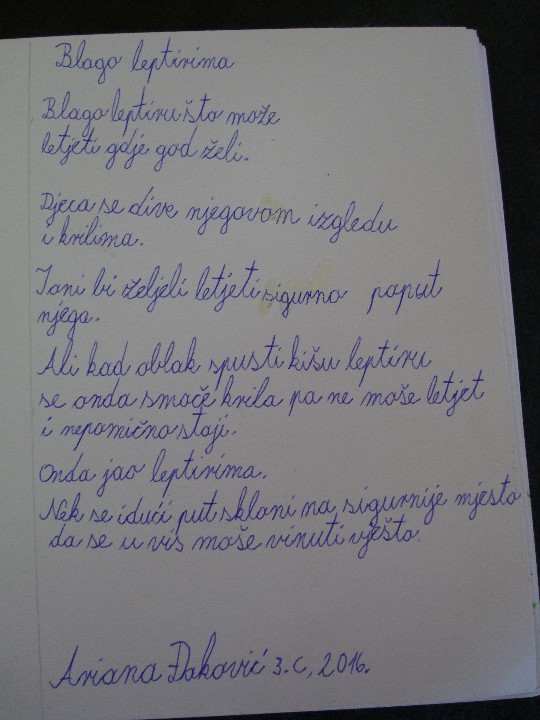 Blago leptirima
Blago leptiru što može
letjeti gdje god želi.
Djeca se dive njegovom izgledu
i krilima.
I oni bi željeli letjeti sigurno paput
njega.
Ali kad oblak spusti kišu leptiru
se onda smoče krila pa ne moše letjet
i nepomično stoji.
Onda jao leptirima.
Nek se idući put skloni na sigurnije mjesto
da se u vis moše vinuti vješto.
Ariana Đaković 3. c, 2016.